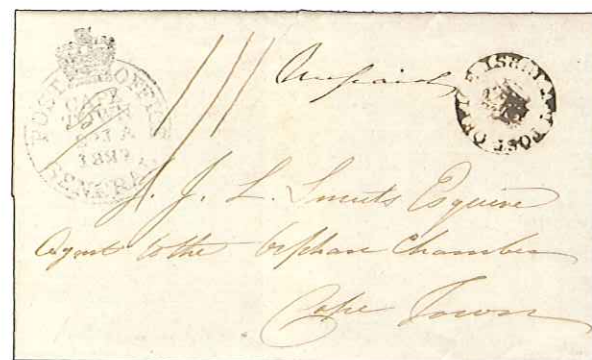 POST OFFICE
CAPE
TOWN
GENERAL
Unpaid
POST OFFICE
J. J. L. Smuts Esquire
Agent to the Orphan Chamber
Cape Town